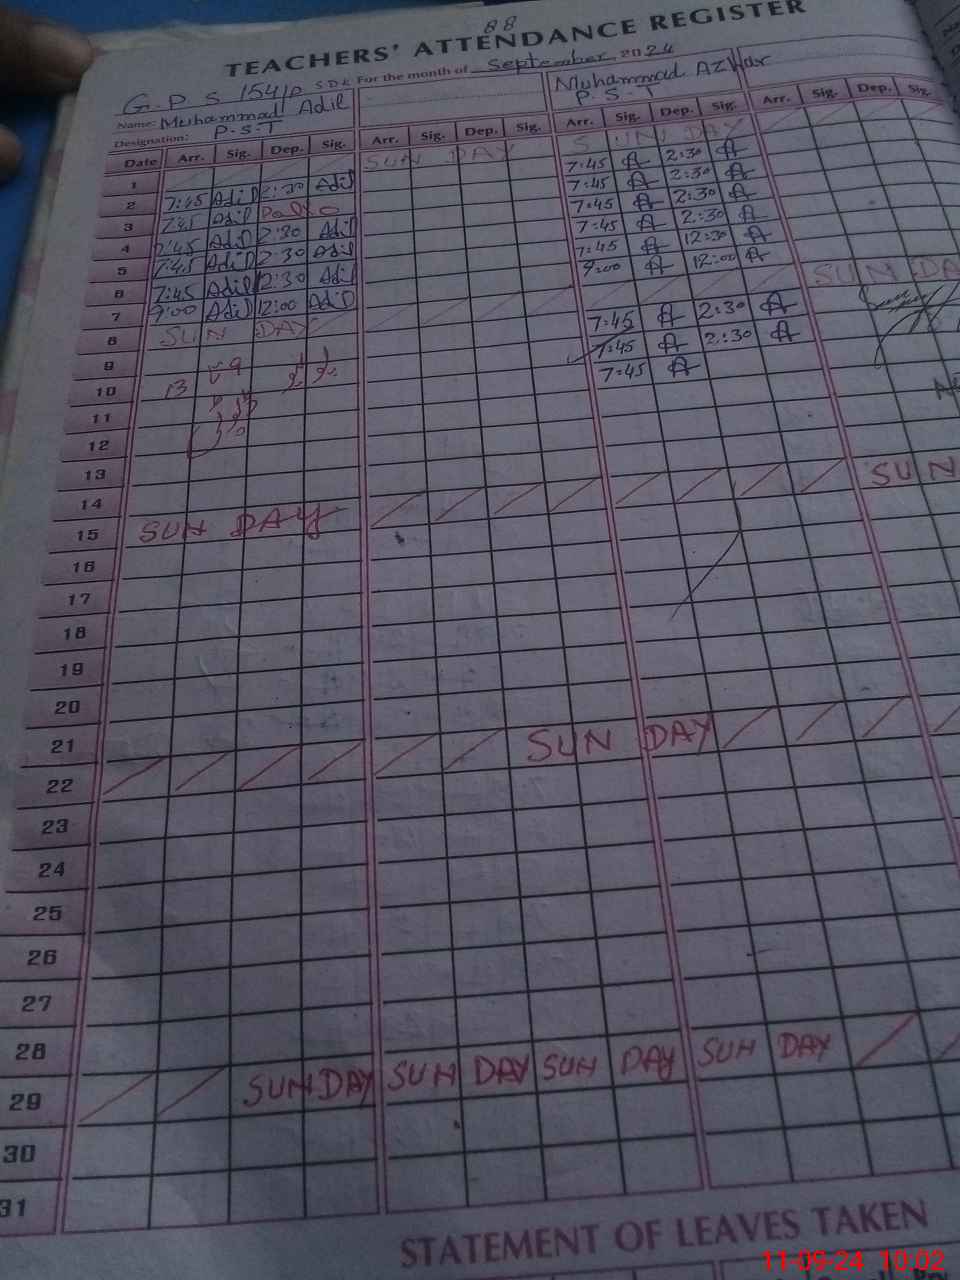 88
TEACHERS' ATTENDANCE REGISTER
G.P.S 154/P S.D.K For the month of September 2024
Name: Muhammad Adil Muhammad Azhar
Designation: P.S.T P.S.T
Date Arr. Sig. Dep. Sig. Arr. Sig. Dep. Sig. Arr. Sig. Dep. Sig. Arr. Sig. Dep. Sig.
1 SUN DAY SUN DAY
2 7:45 Adil 2:30 Adil 7:45 A 2:30 A
3 7:45 Adil 7:45 A 2:30 A
4 7:45 Adil 2:30 Adil 7:45 A 2:30 A
5 7:45 Adil 2:30 Adil 7:45 A 2:30 A
6 7:45 Adil 12:30 Adil 7:45 A 12:30 A
7 9:00 Adil 12:00 Adil 9:00 A 12:00 A
8 SUN DAY SUN DA
9 7:45 A 2:30 A
10 7:45 A 2:30 A
11 7:45 A
12
13
14
15 SUN DAY SUN
16
17
18
19
20
21
22 SUN DAY
23
24
25
26
27
28
29 SUN DAY SUN DAY SUN DAY SUN DAY
30
31
STATEMENT OF LEAVES TAKEN
11-09-24 10:02